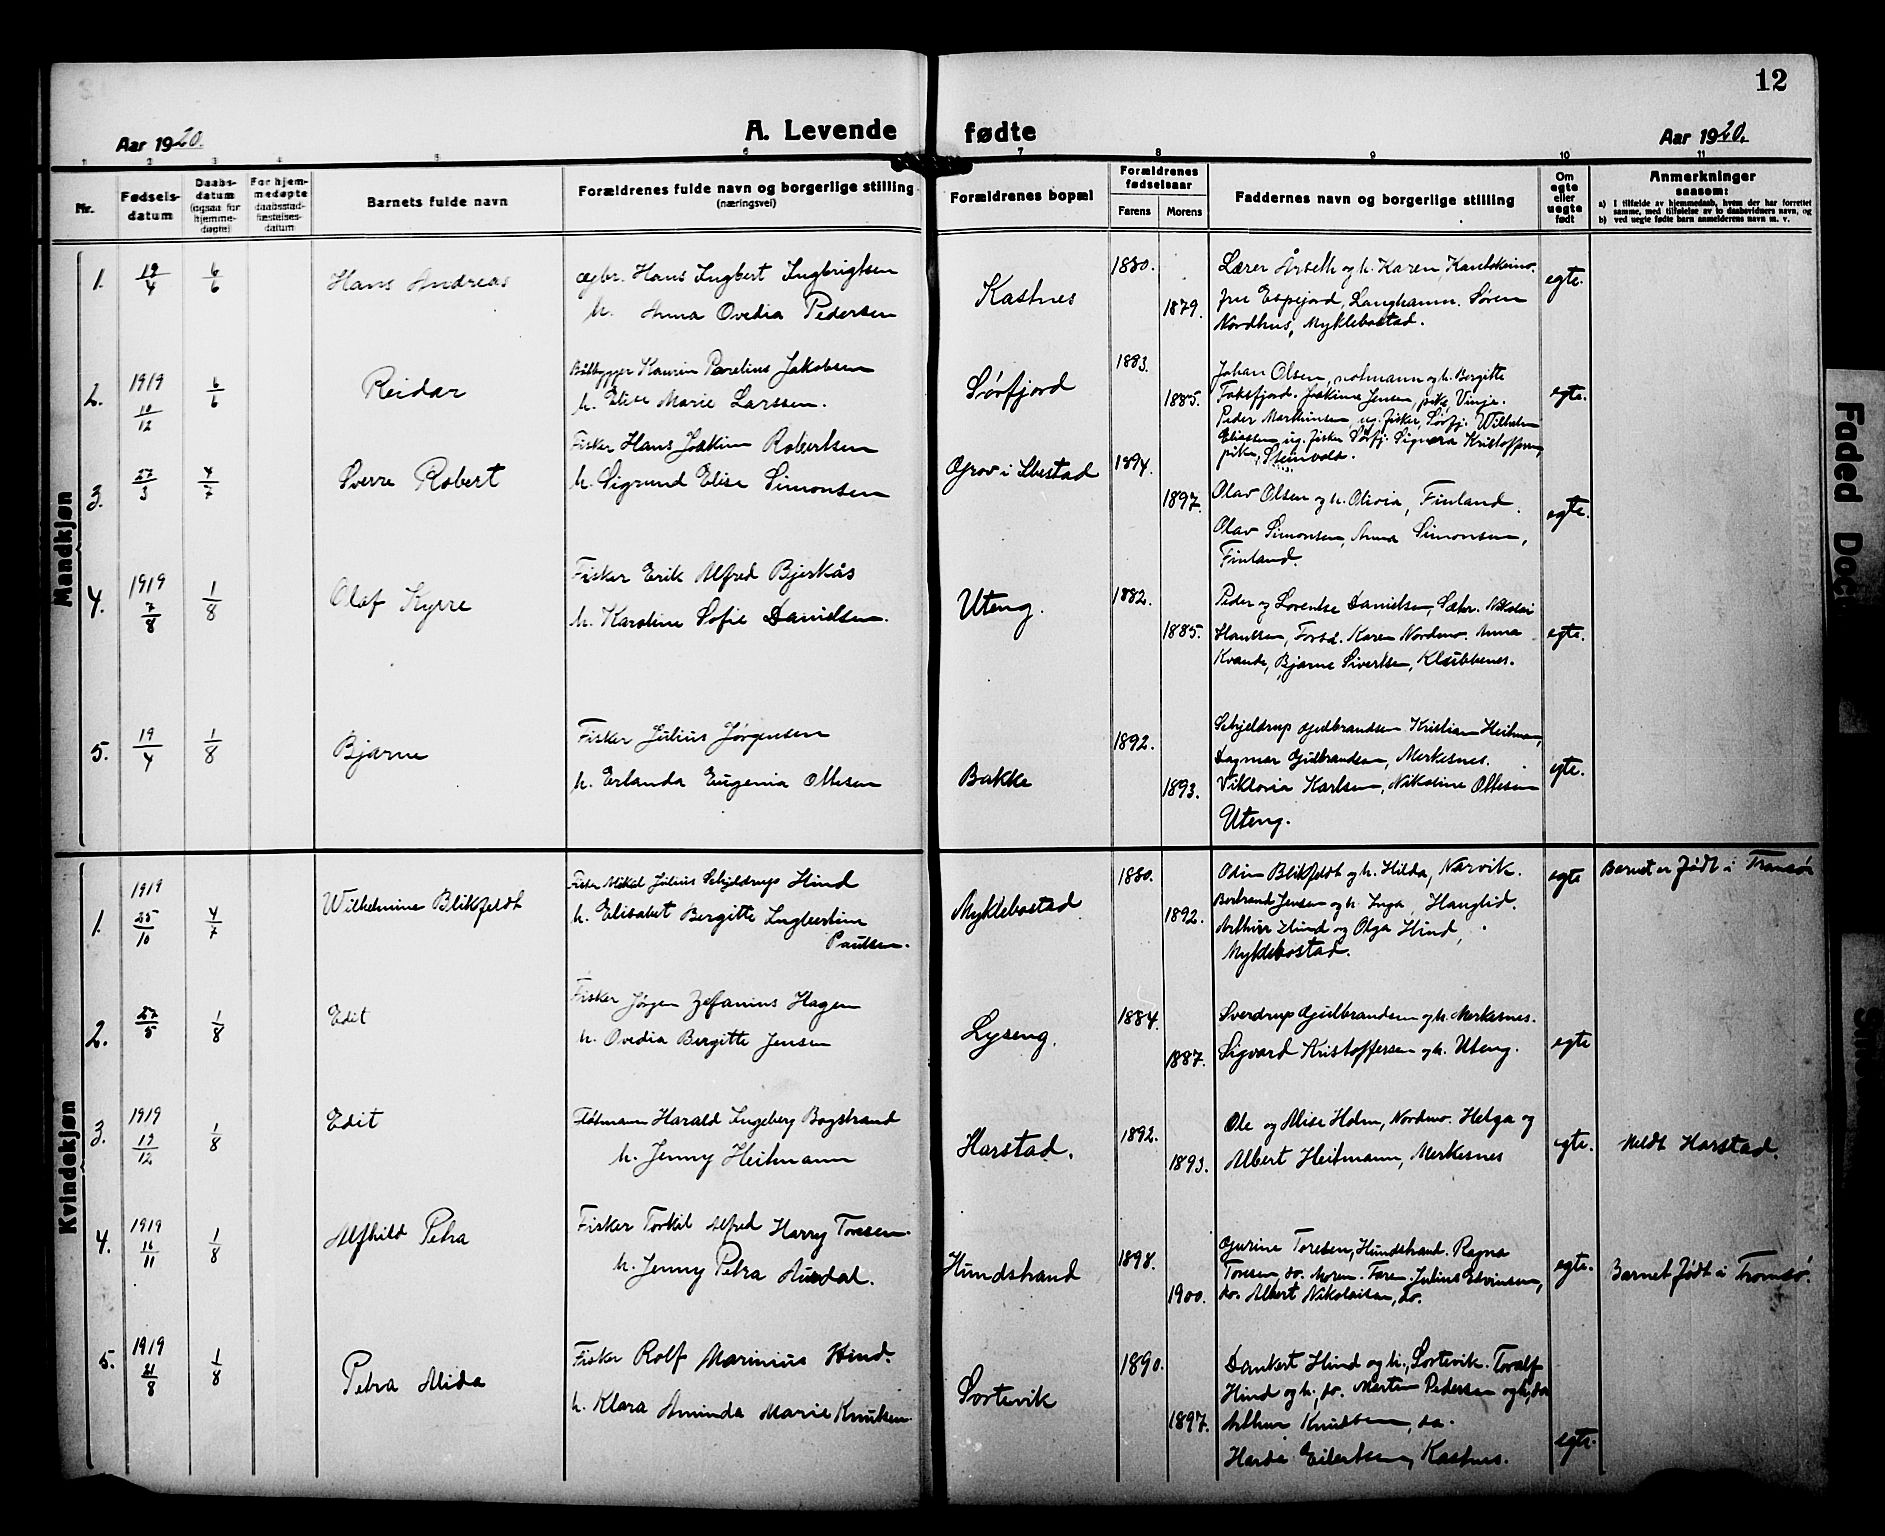 12
Aar 1920.
A. Levende fødte
Aar 1920.
1 2 3 4 5 6 7 8 9 10 11
Nr.
Fødsels-
datum
Daabs-
datum
(ogsaa for
hjemme-
døpte)
For hjem-
medøpte
daabsstad-
fæstelses-
datum
Barnets fulde navn
Forældrenes fulde navn og borgerlige stilling
(næringsvei)
Forældrenes bopæl
Forældrenes
fødselsaar
Farens
Morens
Faddernes navn og borgerlige stilling
Om
egte
eller
uegte
født
Anmerkninger
saasom:
a) I tilfælde av hjemmedaab, hvem der har forrettet
samme, med tilføielse av to daabsvidners navn, og
b) ved uegte fødte barn anmelderens navn m. v.
Mandkjøn
1.
19/4
6/6
Hans Andreas
Hans Ingbert Ingbrigtsen
h. Anna Ovedia Pedersen
Kastnes
1880.
1879.
Lærer Årseth og h. Karen,
fru Espejord, Langhamn. Søren
Nordhus, Myklebostad.
egte.
2.
1919
10/12
6/6
Reidar
Båtbygger Kaurin Parelius Jakobsen
h. Elise Marie Larssen.
Sörfjord
1883.
1885.
Johan Olsen, notmann og h. Bergitte
Faksfjord. Joakima Jensen, pike, Vinje.
Peder Marthinsen, ug. fisker, Sörfj. Wilhelm
Eliassen, ug. fisker Sörfj. Signora Kristoffersen,
pike, Steinvold.
egte.
3.
27/3
4/7
Sverre Robert
Fisker Hans Joakim Robertsen
h. Sigrund Elise Simonsen
Grov i Ibestad
1894.
1897.
Olav Olsen og h. Olivia, Finland.
Olav Simonsen, Anna Simonsen,
Finland.
egte.
4.
1919
7/8
1/8
Olaf Kyrre
Fisker Erik Alfred Bjerkås
h. Karoline Sofie Danielsen.
Uteng.
1882.
1885.
Peder og Lorentse Danielsen, Sætr. Nikolai
Hanssen, Forsd. Karen Nordmo. Anna
Kvande, Bjarne Sivertsen, Klubbenes.
egte.
5.
19/4
1/8
Bjarne
Fisker Julius Jørgensen
h. Erlanda Eugenia Ottesen
Bakke
1892.
1893.
Schjeldrup Gulbrandsen Kristian Heitman,
Dagmar Gulbrandsen, Merkesnes.
Viktoria Karlsen, Nikoline Ottesen
Uteng.
egte.
Kvindekjøn
1.
1919
25/10
4/7
Wilhelmine Blikfeldt
Fisker Mikal Julius Schjeldrup Hind
h. Elisabet Bergitte Ingleertine
Paulsen.
Myklebostad
1880.
1892.
Odin Blikfeldt og h. Hilda, Narvik.
Bertrand Jensen og h. Inga, Hauglid.
Arthur Hind og Olga Hind,
Myklebostad.
egte
Barnet er født i Tromsö
2.
27/5
1/8
Edit
Fisker Jørgen Zefanius Hagen
h. Ovedia Bergitte Jensen
Lyseng.
1884.
1887.
Sverdrup Gulbrandsen og h. Merkesnes.
Sigvard Kristoffersen og h. Uteng.
egte
3.
1919
19/12
1/8
Edit
Fløtmann Harald Ingeberg Bogstrand
h. Jenny Heitmann
Harstad.
1892.
1893.
Ole og Alise Holm, Nordmo. Helga og
Albert Heitmann, Merkesnes
egte.
Meldt Harstad.
4.
1919
16/11
1/8
Alfhild Petra
Fisker Torkil Alfred Harry Toresen.
h. Jenny Petra Ausdal.
Hundstrand
1898.
1900.
Gurine Toresen, Hundstrand. Ragna
Toresen, do. Moren. Faren. Julius Edvinsen,
do. Albert Nikolaisen, do.
egte.
Barnet født i Tromsö.
5.
1919
21/8
1/8
Petra Alida
Fisker Rolf Marinius Hind.
h. Klara Aminda Marie Knutsen.
Sortevik
1890.
1897.
Dankert Hind og h., Sortevik. Toralf
Hind og h., do. Martin Pedersen og h., do.
Arthur Knudsen, do.
Harda Eilertsen, Kastnes.
egte.
Faded Doc